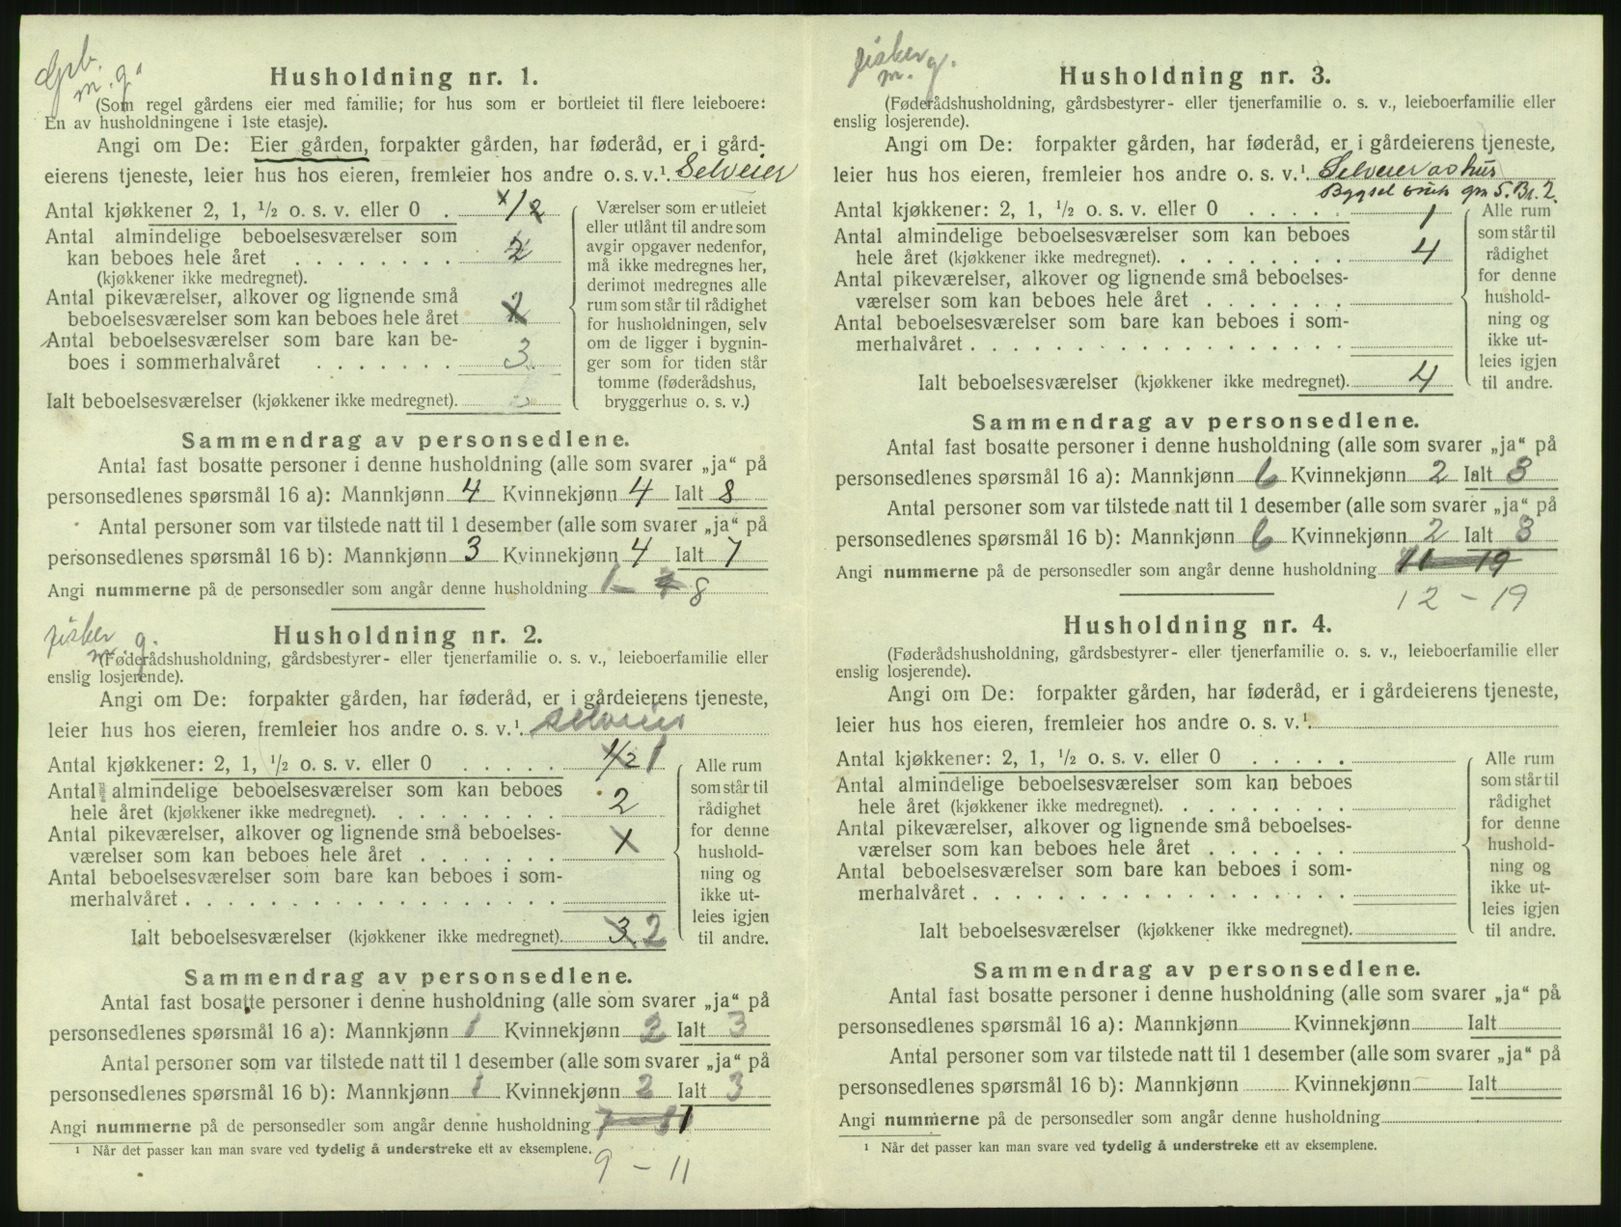 Grb.
m. g.
Husholdning nr. 1.
(Som regel gårdens eier med familie; for hus som er bortleiet til flere leieboere:
En av husholdningene i 1ste etasje).
Angi om De: Eier gården, forpakter gården, har føderåd, er i gård-
eierens tjeneste, leier hus hos eieren, fremleier hos andre o. s. v.¹ Selveier
Antal kjøkkener 2, 1, ½ o. s. v. eller 0 . x/2
Antal almindelige beboelsesværelser som
kan beboes hele året . . . . . . . . 2
(kjøkkener ikke medregnet).
Antal pikeværelser, alkover og lignende små
beboelsesværelser som kan beboes hele året
Antal beboelsesværelser som bare kan be-
boes i sommerhalvåret . . . . . . . 3
Ialt beboelsesværelser (kjøkkener ikke medregnet).
Værelser som er utleiet
eller utlånt til andre som
avgir opgaver nedenfor,
må ikke medregnes her,
derimot medregnes alle
rum som står til rådighet
for husholdningen, selv
om de ligger i bygnin-
ger som for tiden står
tomme (føderådshus,
bryggerhus o. s. v.)
Sammendrag av personsedlene.
Antal fast bosatte personer i denne husholdning (alle som svarer „ja“ på
personsedlenes spørsmål 16 a): Mannkjønn 4 Kvinnekjønn 4 Ialt 8
Antal personer som var tilstede natt til 1 desember (alle som svarer „ja“ på
personsedlenes spørsmål 16 b): Mannkjønn 3 Kvinnekjønn 4 Ialt 7
Angi nummerne på de personsedler som angår denne husholdning 1 — 8
fisker g.
m.
Husholdning nr. 2.
(Føderådshusholdning, gårdsbestyrer- eller tjenerfamilie o. s. v., leieboerfamilie eller
enslig losjerende).
Angi om De: forpakter gården, har føderåd, er i gårdeierens tjeneste,
leier hus hos eieren, fremleier hos andre o. s. v.¹ selveier
Antal kjøkkener: 2, 1, ½ o. s. v. eller 0 . . . . . 1/2 1
Antal almindelige beboelsesværelser som kan beboes
hele året (kjøkkener ikke medregnet). . . . . . . . . 2
Antal pikeværelser, alkover og lignende små beboelses-
værelser som kan beboes hele året . . . . . . . x
Antal beboelsesværelser som bare kan beboes i som-
merhalvåret . . . . . . . . . . . . . . . . . .
Ialt beboelsesværelser (kjøkkener ikke medregnet). 3 2
Alle rum
som står til
rådighet
for denne
hushold-
ning og
ikke ut-
leies igjen
til andre.
Sammendrag av personsedlene.
Antal fast bosatte personer i denne husholdning (alle som svarer „ja“ på
personsedlenes spørsmål 16 a): Mannkjønn 1 Kvinnekjønn 2 Ialt 3
Antal personer som var tilstede natt til 1 desember (alle som svarer „ja“ på
personsedlenes spørsmål 16 b): Mannkjønn 1 Kvinnekjønn 2 Ialt 3
Angi nummerne på de personsedler som angår denne husholdning
¹ Når det passer kan man svare ved tydelig å understreke ett av eksemplene.
9 — 11
fisker g.
m.
Husholdning nr. 3.
(Føderådshusholdning, gårdsbestyrer- eller tjenerfamilie o. s. v., leieboerfamilie eller
enslig losjerende).
Angi om De: forpakter gården, har føderåd, er i gårdeierens tjeneste,
leier hus hos eieren, fremleier hos andre o. s. v.¹ Selveier av hus
Bygsel gn 5. Br. 2.
Antal kjøkkener: 2, 1, ½ o. s. v. eller 0 . . . . . 1
Antal almindelige beboelsesværelser som kan beboes
hele året (kjøkkener ikke medregnet). . . . . . . . . 4
Antal pikeværelser, alkover og lignende små beboelses-
værelser som kan beboes hele året . . . . . . .
Antal beboelsesværelser som bare kan beboes i som-
merhalvåret . . . . . . . . . . . . . . . . . .
Ialt beboelsesværelser (kjøkkener ikke medregnet). 4
Alle rum
som står til
rådighet
for denne
hushold-
ning og
ikke ut-
leies igjen
til andre.
Sammendrag av personsedlene.
Antal fast bosatte personer i denne husholdning (alle som svarer „ja“ på
personsedlenes spørsmål 16 a): Mannkjønn 6 Kvinnekjønn 2 Ialt 8
Antal personer som var tilstede natt til 1 desember (alle som svarer „ja“ på
personsedlenes spørsmål 16 b): Mannkjønn 6 Kvinnekjønn 2 Ialt 8
Angi nummerne på de personsedler som angår denne husholdning 11 — 19
12 — 19
Husholdning nr. 4.
(Føderådshusholdning, gårdsbestyrer- eller tjenerfamilie o. s. v., leieboerfamilie eller
enslig losjerende).
Angi om De: forpakter gården, har føderåd, er i gårdeierens tjeneste,
leier hus hos eieren, fremleier hos andre o. s. v.¹
Antal kjøkkener: 2, 1, ½ o. s. v. eller 0 . . . . .
Antal almindelige beboelsesværelser som kan beboes
hele året (kjøkkener ikke medregnet). . . . . . . . .
Antal pikeværelser, alkover og lignende små beboelses-
værelser som kan beboes hele året . . . . . . .
Antal beboelsesværelser som bare kan beboes i som-
merhalvåret . . . . . . . . . . . . . . . . . .
Ialt beboelsesværelser (kjøkkener ikke medregnet).
Alle rum
som står til
rådighet
for denne
hushold-
ning og
ikke ut-
leies igjen
til andre.
Sammendrag av personsedlene.
Antal fast bosatte personer i denne husholdning (alle som svarer „ja“ på
personsedlenes spørsmål 16 a): Mannkjønn Kvinnekjønn Ialt
Antal personer som var tilstede natt til 1 desember (alle som svarer „ja“ på
personsedlenes spørsmål 16 b): Mannkjønn Kvinnekjønn Ialt
Angi nummerne på de personsedler som angår denne husholdning
¹ Når det passer kan man svare ved tydelig å understreke ett av eksemplene.